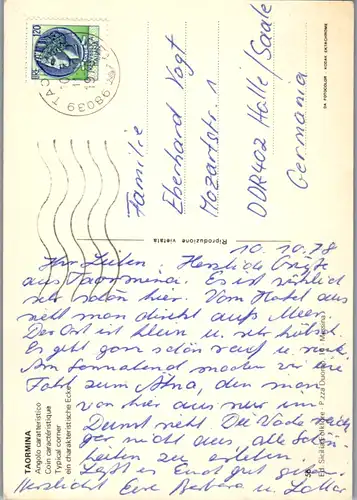 L. 120
98039 TAO
Familie
Eberhard Vogt
Mozartstr. 1
DDR 402 Halle/Saale
Germania
DA FOTOCOLOR - KODAK EKTACHROME
Riproduzione vietata
10.10.78
Ihr Lieben, Herzliche Grüße
aus Taormina. Es ist wirklich
sehr schön hier. Vom Hotel aus
sieht man direkt aufs Meer.
Der Ort ist klein u. sehr hübsch.
Es geht ganz schön rauf u. runter.
Am Sonnabend machen wir eine
Fahrt zum Ätna, den man
von hier aus nur im
Dunst sieht. Die Tage
gar nicht aus, alle
heiten zu erleben.
Laßt es Euch gut gehen.
Herzlichst Eure Barbara u. Lothar
TAORMINA
Angolo caratteristico
Coin caractéristique
Typical corner
ein charakteristische Ecke